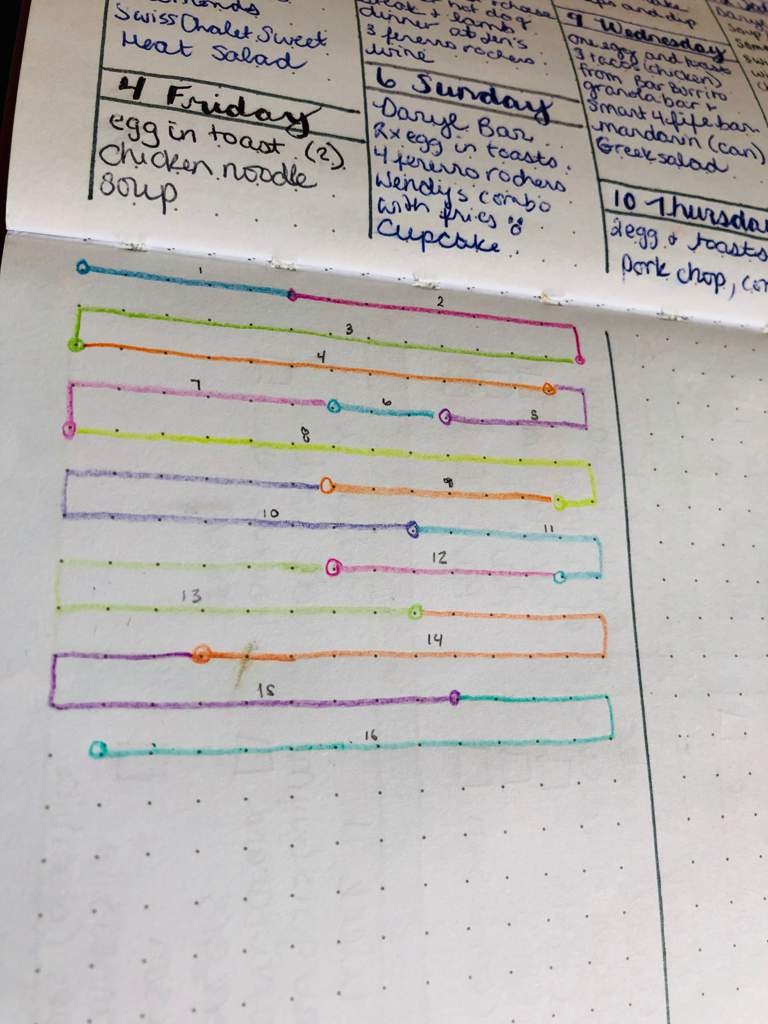 Swiss Chalet Sweet
Heat Salad
4 Friday
egg in toast (2)
chicken noodle
soup
hot dog
steak + lamb
dinner at Jen's
3 ferrerro rochers
wine
6 Sunday
Daryl Bar
2x egg in toasts
4 ferrerro rochers
Wendys combo
with fries
Cupcake
and dip
9 Wednesday
one egg and toast
3 tacos (chicken)
from Bar Burrito
granola bar +
smart 4 life bar
mandarin (can)
Greek salad
10 Thursday
2 egg + toasts
pork chop,
1
2
3
4
7
6
5
8
9
10
11
12
13
14
15
16